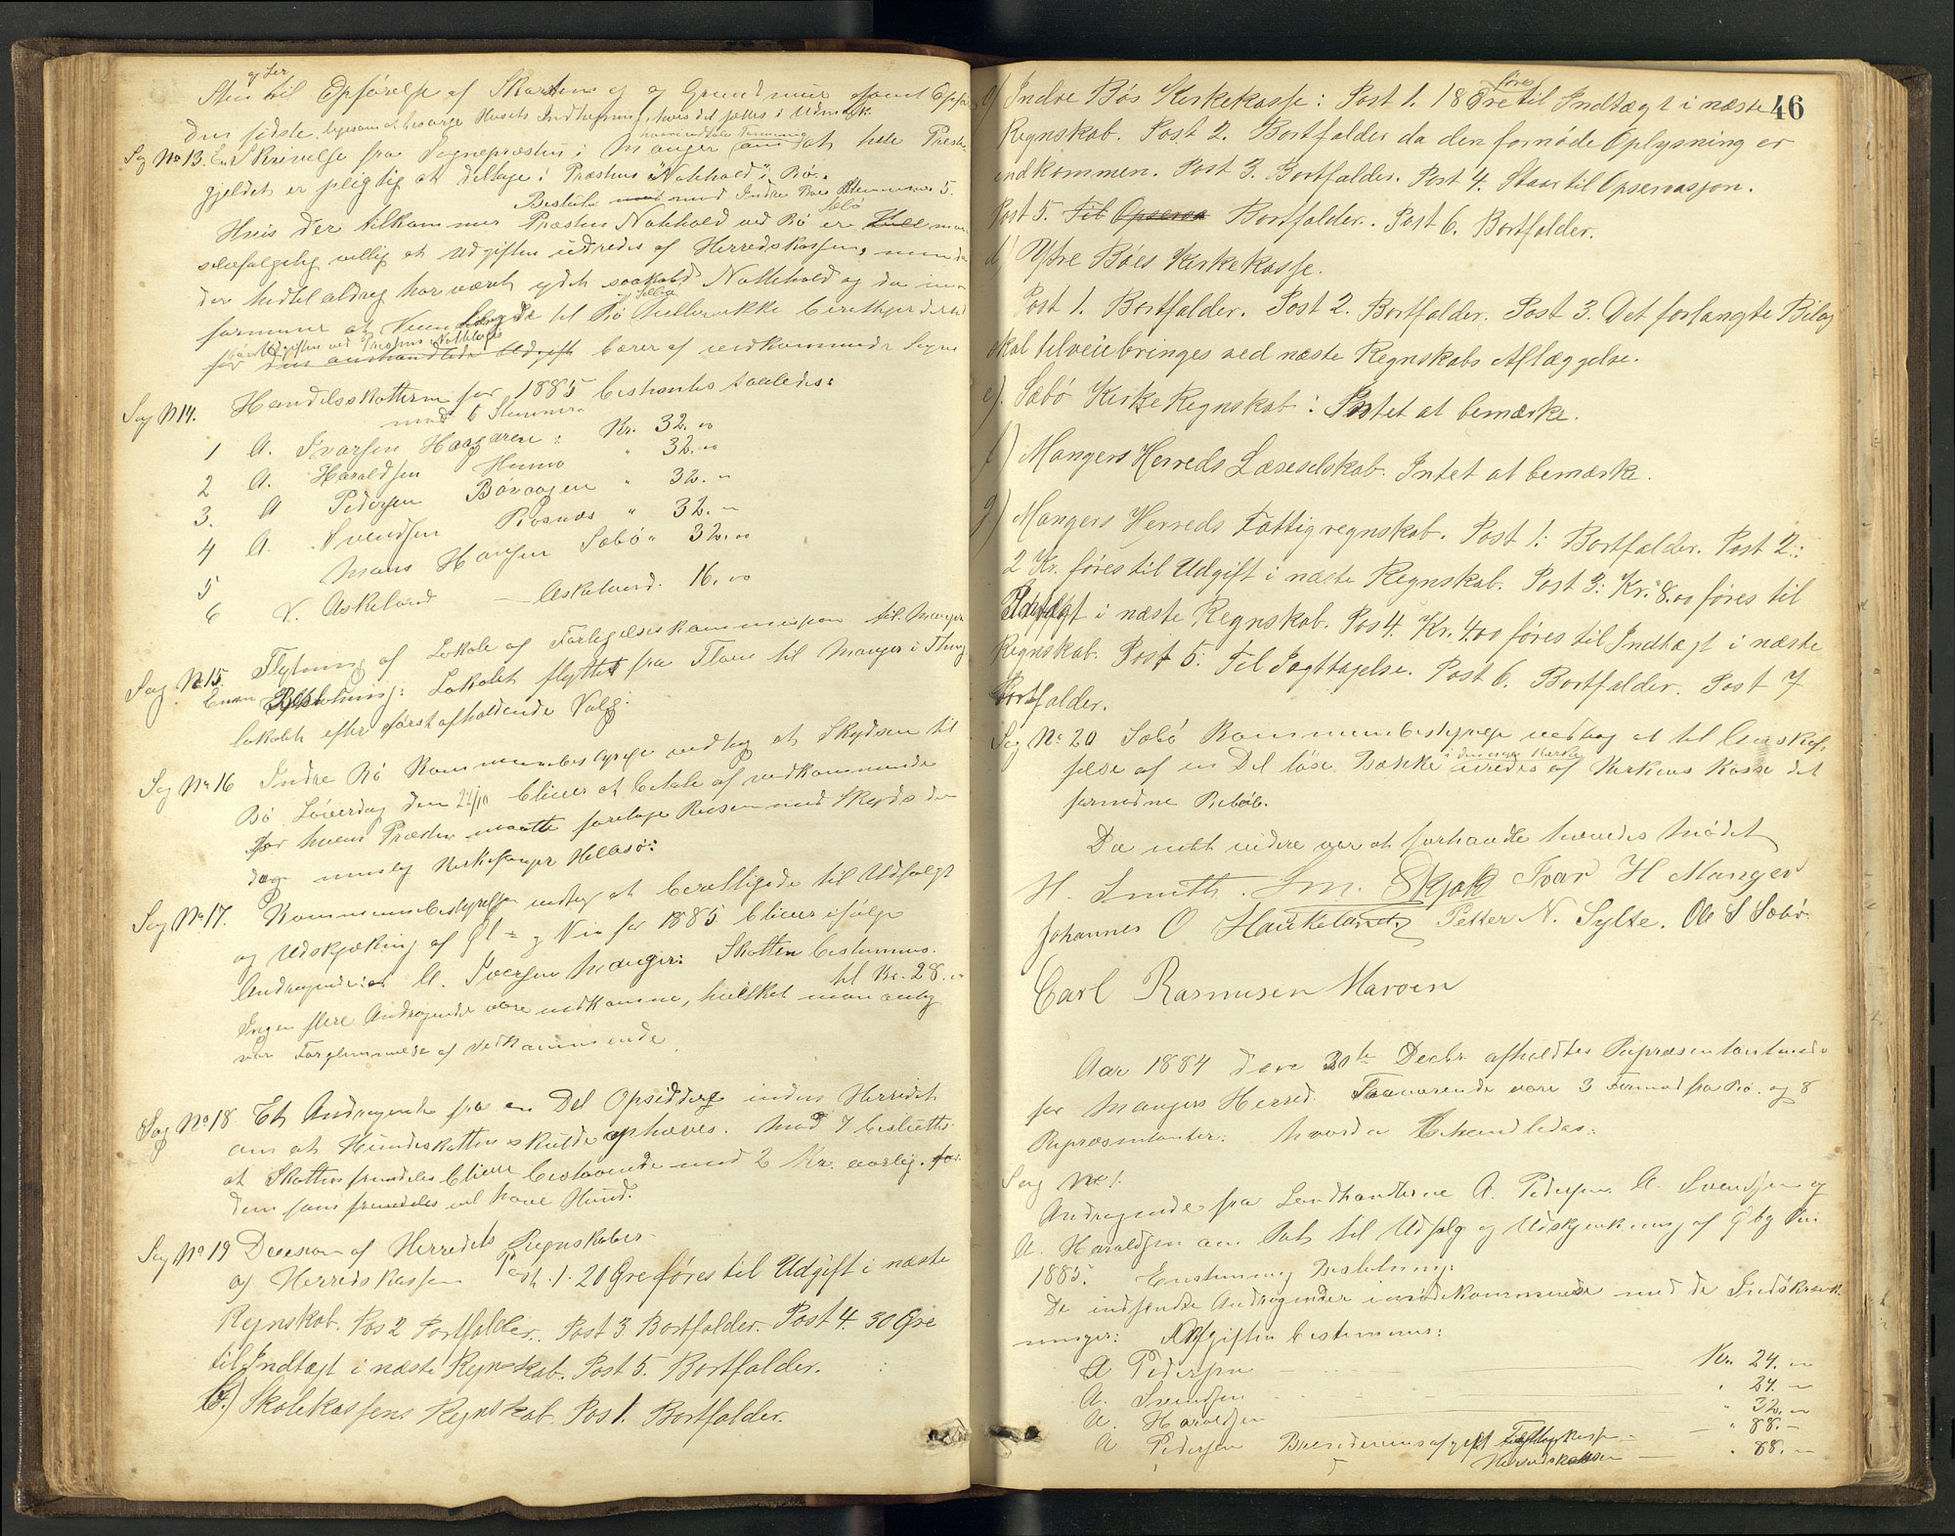 og Ler
Sten til Opførelse af Skorsten og Grundmuur samt Opsæt
den første, ligesom at besørge Husets Indhegning, hvis det sættes i Udmark
Sag No 13. Skrivelse fra Sognepræsten i Manger om at hele Præste-
gjeldet er pligtig at deltage i Præstens Nattehold i Bø.
Besluttet med Indre Bøes Stemmer 5.
Hvis der tilkommer Præsten Nattehold ved Bø er man
selvfølgelig villig at Udgiften udredes af Herredskassen, men da
der hidtil aldrig har været ydet saakaldt Nattehold og da
formener at til Bø heller ikke berettiget
for den omhandlede Udgift bæres af vedkommende Sogne
Sag N 14. Handelsskatterne for 1885 bestemtes saaledes:
med 6 Stemmer
1 A. Ivarsen Haagaren: Kr. 32.00
2 A. Haraldsen Hennø " 32.00
3. A Pedersen Bøvaagen " 32. "
4 A. Svendsen Rosnæs " 32. "
5 Mons Hansen Sæbø " 32.00
6 N. Askeland Askeland. 16.00
Sag No 15. Flytning af Lokale af Forligelseskommission til Manger
Enem Beslutning: Lokalet flyttet fra Flaue til Manger i Thing
lokalet efter først afholdende Valg.
Sag No 16 Indre Bø Kommunebestyrelse vedtog at Skydsen til
Bø Løverdag den 24/10 bliver at betale af vedkommende
for hvem Præsten maatte foretage Reisen med Skyds den
dag nemlig Kirkesanger Hellesø:
Sag No 17. Kommunebestyrelsen vedtog at berettigede til Udsalgt
og Udskjækning af Øl og Vin for 1885 bliver ifølge
Andragende: A. Iversen Manger: Skatten bestemmes
til Kr. 28.00
Ingen flere Andragender vare indkomne, hvilket man antog
var Forglemmelse af Vedkommende.
Sag No 18 Et Andragende fra en Del Opsiddere inden Herredet
om at Hundeskatten skulde ophæves. Med 7 besluttes
at Skatten fremdeles bliver bestaaende med 2 Kr. aarlig for
dem som fremdeles vil have Hund.
Sag No 19 Decision af Herredets Regnskaber
a) Herredskassen Post. 1. 20 Øre føres til Udgift i næste
Regnskab. Pos 2 Bortfalder. Post 3 Bortfalder. Post 4. 30 Øre
til Indtægt i næste Regnskab. Post 5. Bortfalder.
b.) Skolekassens Regnskab. Pos 1. Bortfalder.
46
føres
c) Indre Bøs Kirkekasse: Post 1. 18 Øre til Indtægt i næste
Regnskab. Post. 2. Bortfalder da den fornøde Oplysning er
indkommen. Post 3. Bortfalder. Post 4. Staar til Opservasjon.
Post 5. Til Opserva Bortfalder. Post 6. Bortfalder.
d) Ytre Bøes Kirkekasse.
Post 1. Bortfalder. Post 2. Bortfalder. Post 3. Det forlangte Bilag
skal tilveiebringes ved næste Regnskabs Aflæggelse.
e). Sæbø Kirke Regnskab: Intet at bemærke.
f) Mangers Herreds Læseselskab. Intet at bemærke.
g) Mangers Herreds Fattigregnskab. Post 1: Bortfalder. Post 2.:
2 Kr. føres til Udgift i næste Regnskab. Post 3: Kr. 8.00 føres til
Indtægt i næste Regnskab. Pos 4. Kr. 4.00 føres til Indtægt i næste
Regnskab. Post 5. Til Iagttagelse. Post 6. Bortfalder. Post 7
Bortfalder.
Sag No 20 Sæbø Kommunebestyrelse vedtog at til Anskaf-
felse af en Del løse Bænke i den nye Kirke uredes af Kirkens Kasse det
fornødne Beløb.
Da intet videre var at forhandle hævedes Mødet
H. Smith. Im. Skjak Ivar H Manger
Johannes O Haukeland Petter N. Sylte. Ole S Sæbø.
Carl Rasmusen Marøen
Aar 1884 den 30te Decbr afholdtes Repræsentantmøde
for Mangers Herred. Tilstedeværende vare 3 Formænd fra Bø. og 8
Repræsentanter. hvorda behandledes:
Sag No 1.
Andragende fra Landhandlerne A. Pedersen A. Svendsen og
A. Haraldsen om Ret til Udsalg og Udskjænkning af Øl og Vin
1885. Enstemmig Beslutning:
De indsendte Andragender imødekommende med de Indskrænk-
ninger: Afgiften bestemmes:
A Pedersen Kr. 24. "
A. Svendsen " 24. "
A. Haraldsen " 32. "
A Pedersen Brændevinsafgift Fattigkassen " 88. "
Herredskassen " 88. "